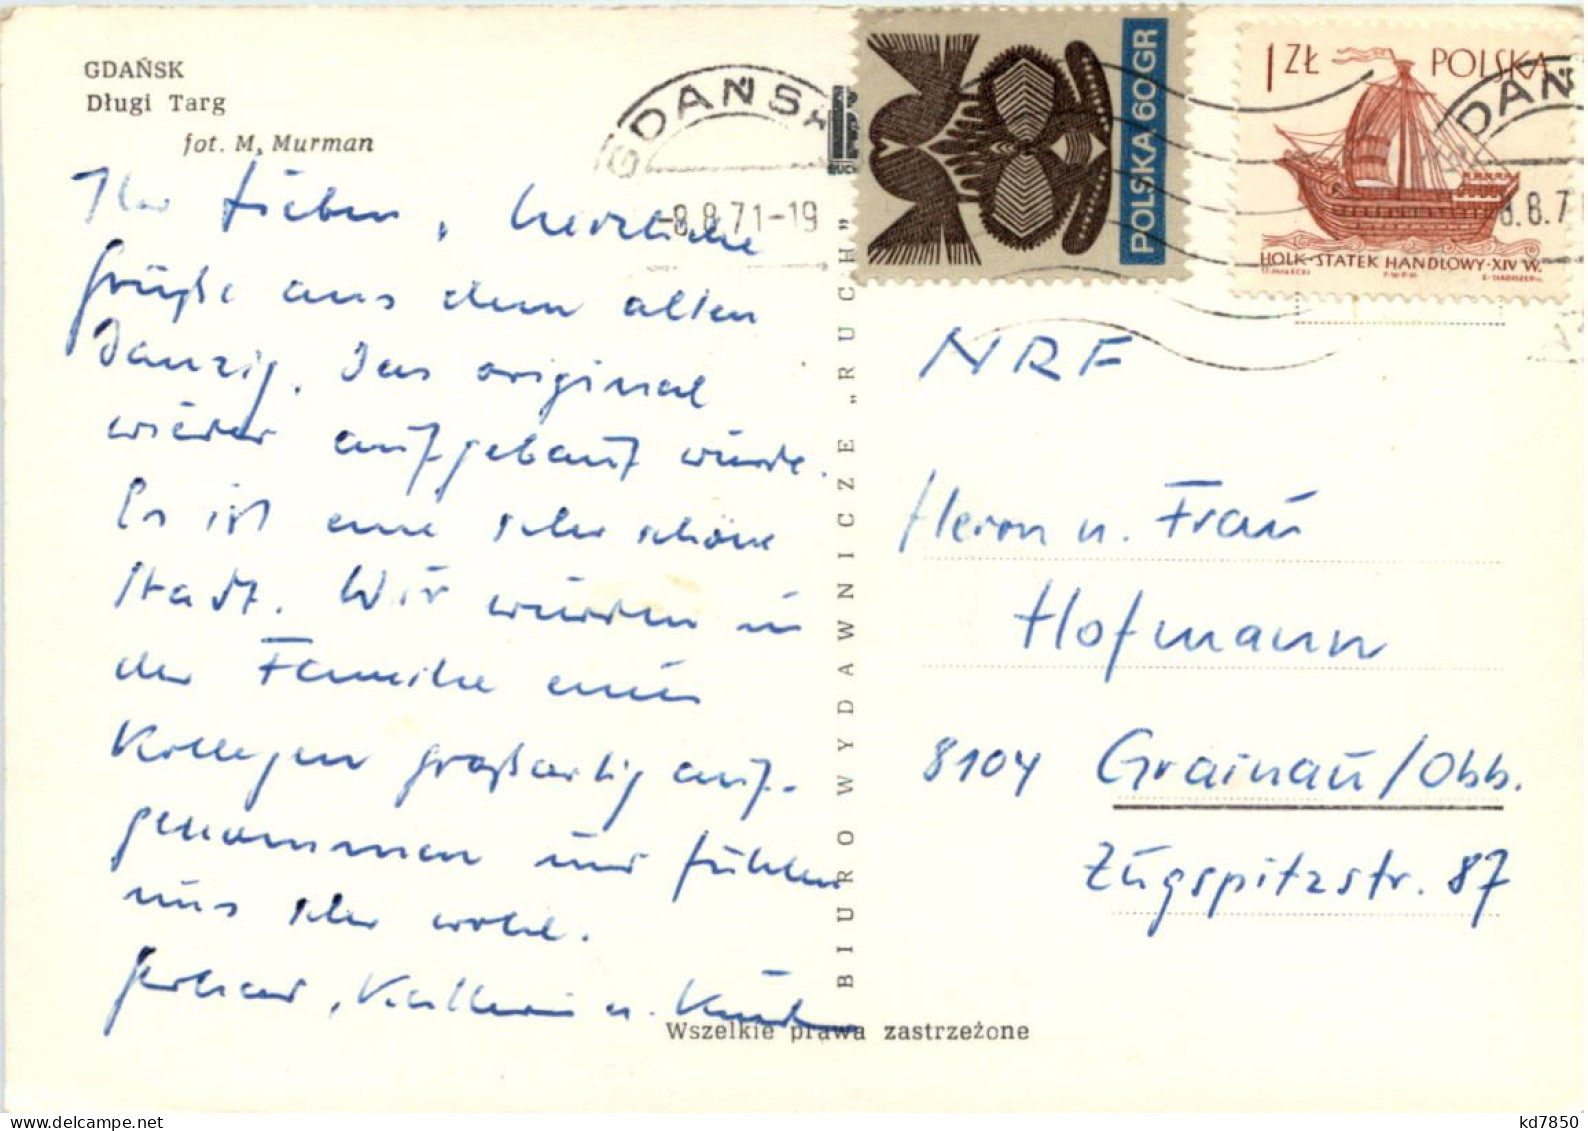 GDAŃSK
Długi Targ
fot. M, Murman
Ihr Lieben, herzliche
Grüße aus dem alten
Danzig. Das original
wieder aufgebaut wurde.
Es ist eine sehr schöne
Stadt. Wir wurden in
der Familie eines
Kollegen großartig auf-
genommen und fühlen
uns sehr wohl.
Gerhard, Kathleen u.
BIURO WYDAWNICZE „RUCH”
Wszelkie prawa zastrzeżone
GDAŃSK
-8.8.71-19
POLSKA 60 GR
1 ZŁ POLSKA
HOLK·STATEK HANDLOWY·XIV W.
DAŃ
8.8.7
NRF
Herrn u. Frau
Hofmann
8104 Grainau/Obb.
Zugspitzstr. 87
kd7850